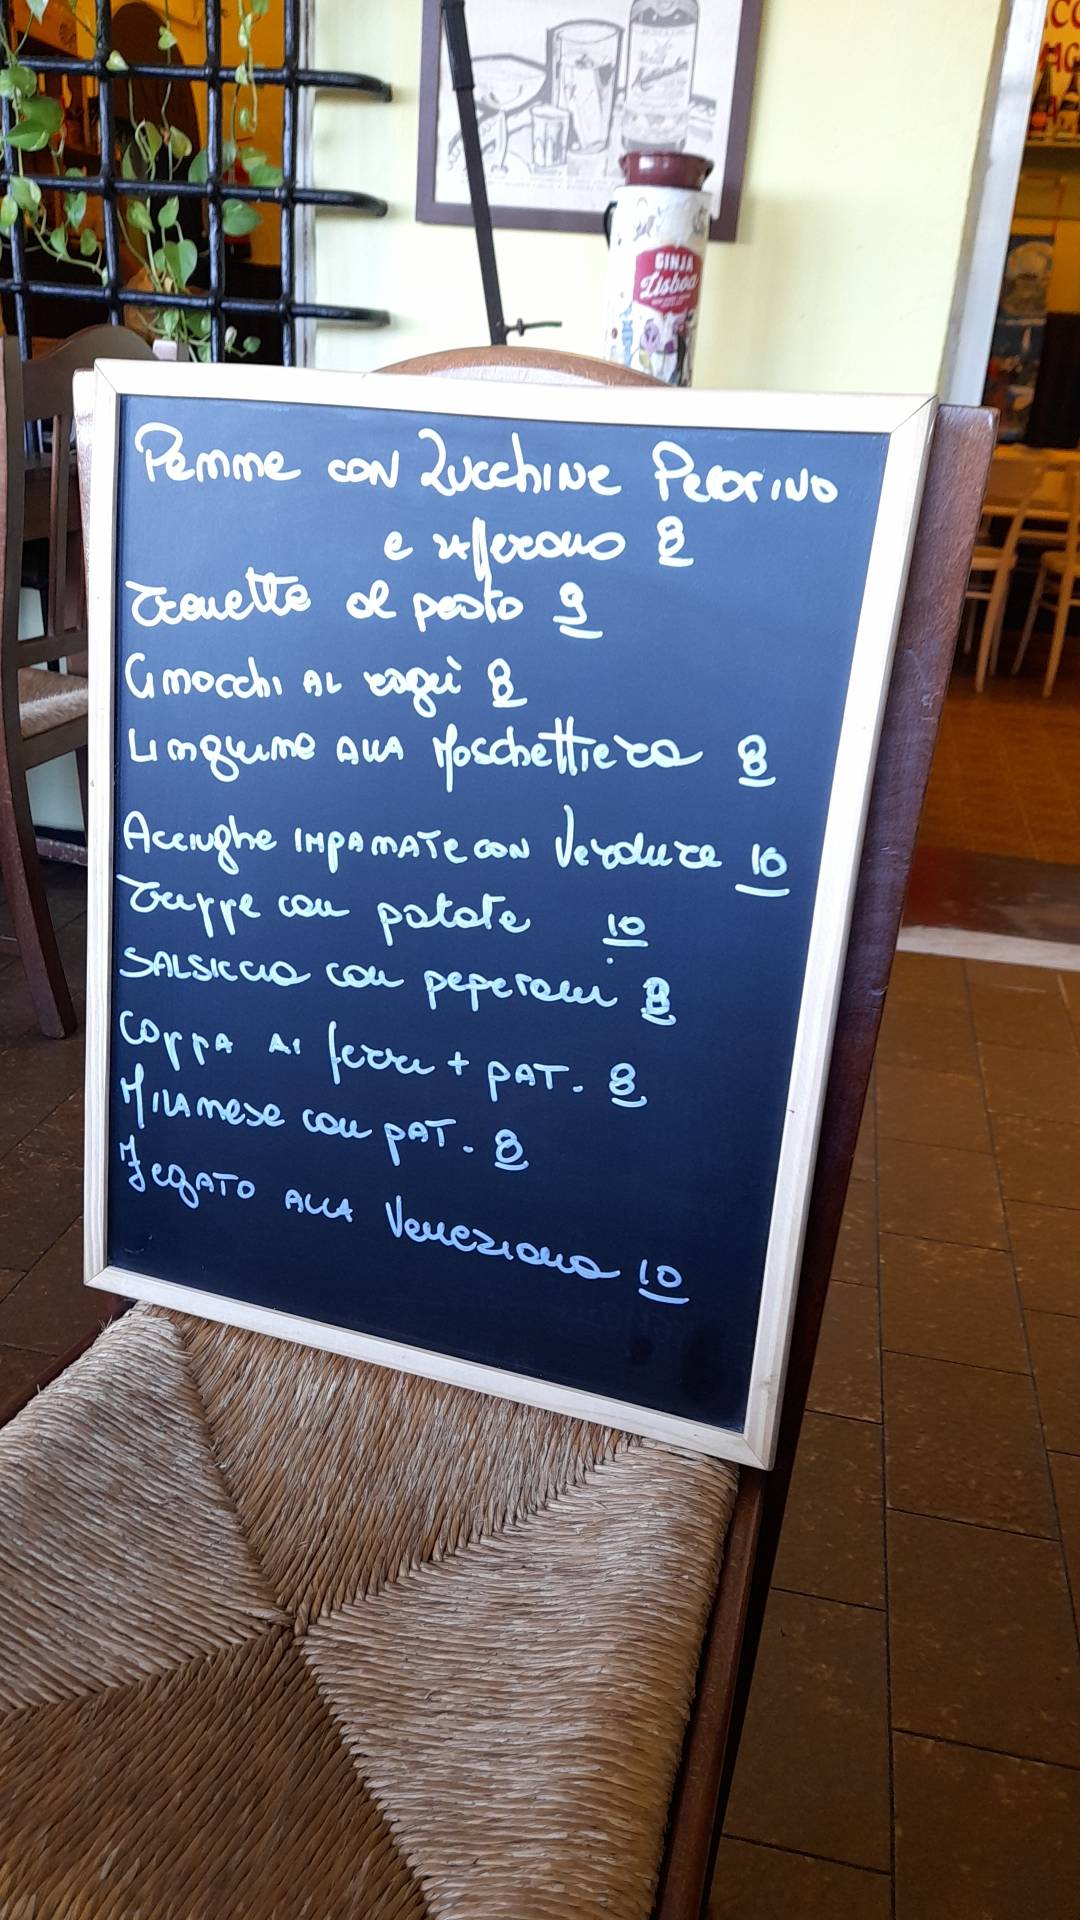 GINJA
Lisboa
Penne con Zucchine Pecorino
e zafferano 8
Trenette al pesto 9
Gnocchi AL ragù 8
Linguine ALLA Moschettiera 8
Acciughe IMPANATE CON Verdure 10
Trippe con patate 10
SALSICCIA con peperoni 8
COPPA AI ferri + PAT. 8
MILANESE con PAT. 8
FEGATO ALLA Veneziana 10